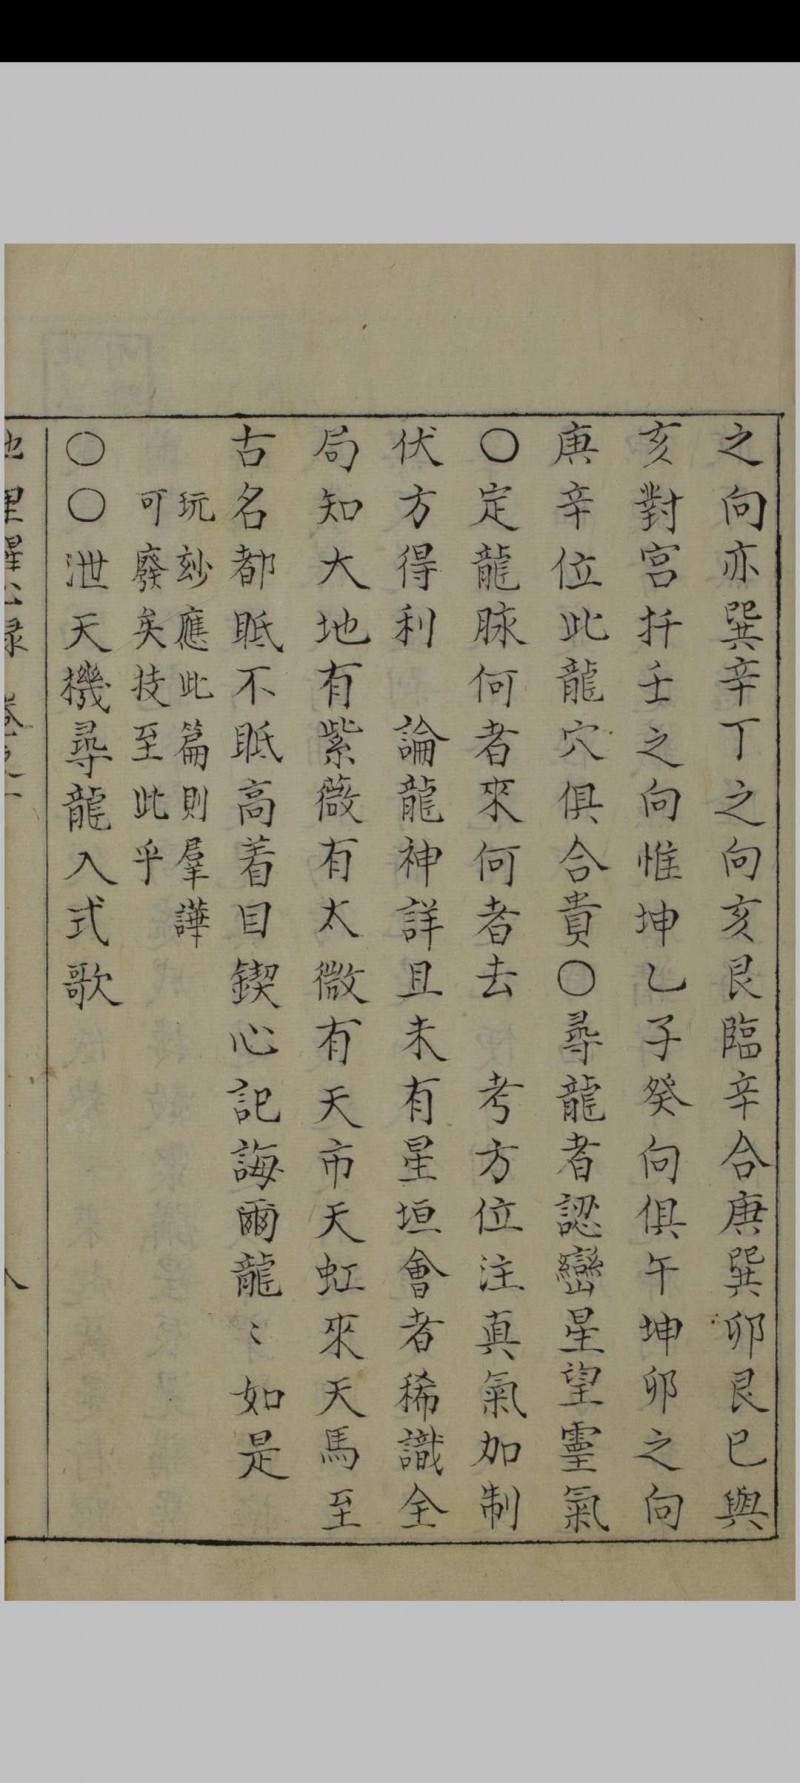 之向亦巽辛丁之向亥艮臨辛合庚巽卯艮巳與
亥對宮扦壬之向惟坤乙子癸向俱午坤卯之向
庚辛位此龍穴俱合貴〇尋龍者認巒星望靈氣
〇定龍脉何者來何者去　考方位注真氣加制
伏方得利　論龍神詳且未有星垣會者稀識全
局知大地有紫薇有太微有天市天虹來天馬至
古名都眂不眂高着目鍥心記誨爾龍〻如是
玩玅應此篇則羣譁
可廢矣技至此乎
〇〇泄天機尋龍入式歌